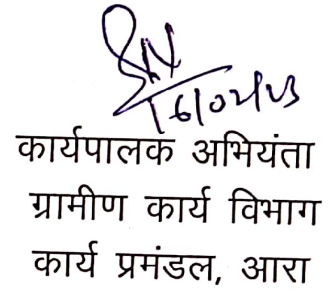 16/02/23
कार्यपालक अभियंता
ग्रामीण कार्य विभाग
कार्य प्रमंडल, आरा